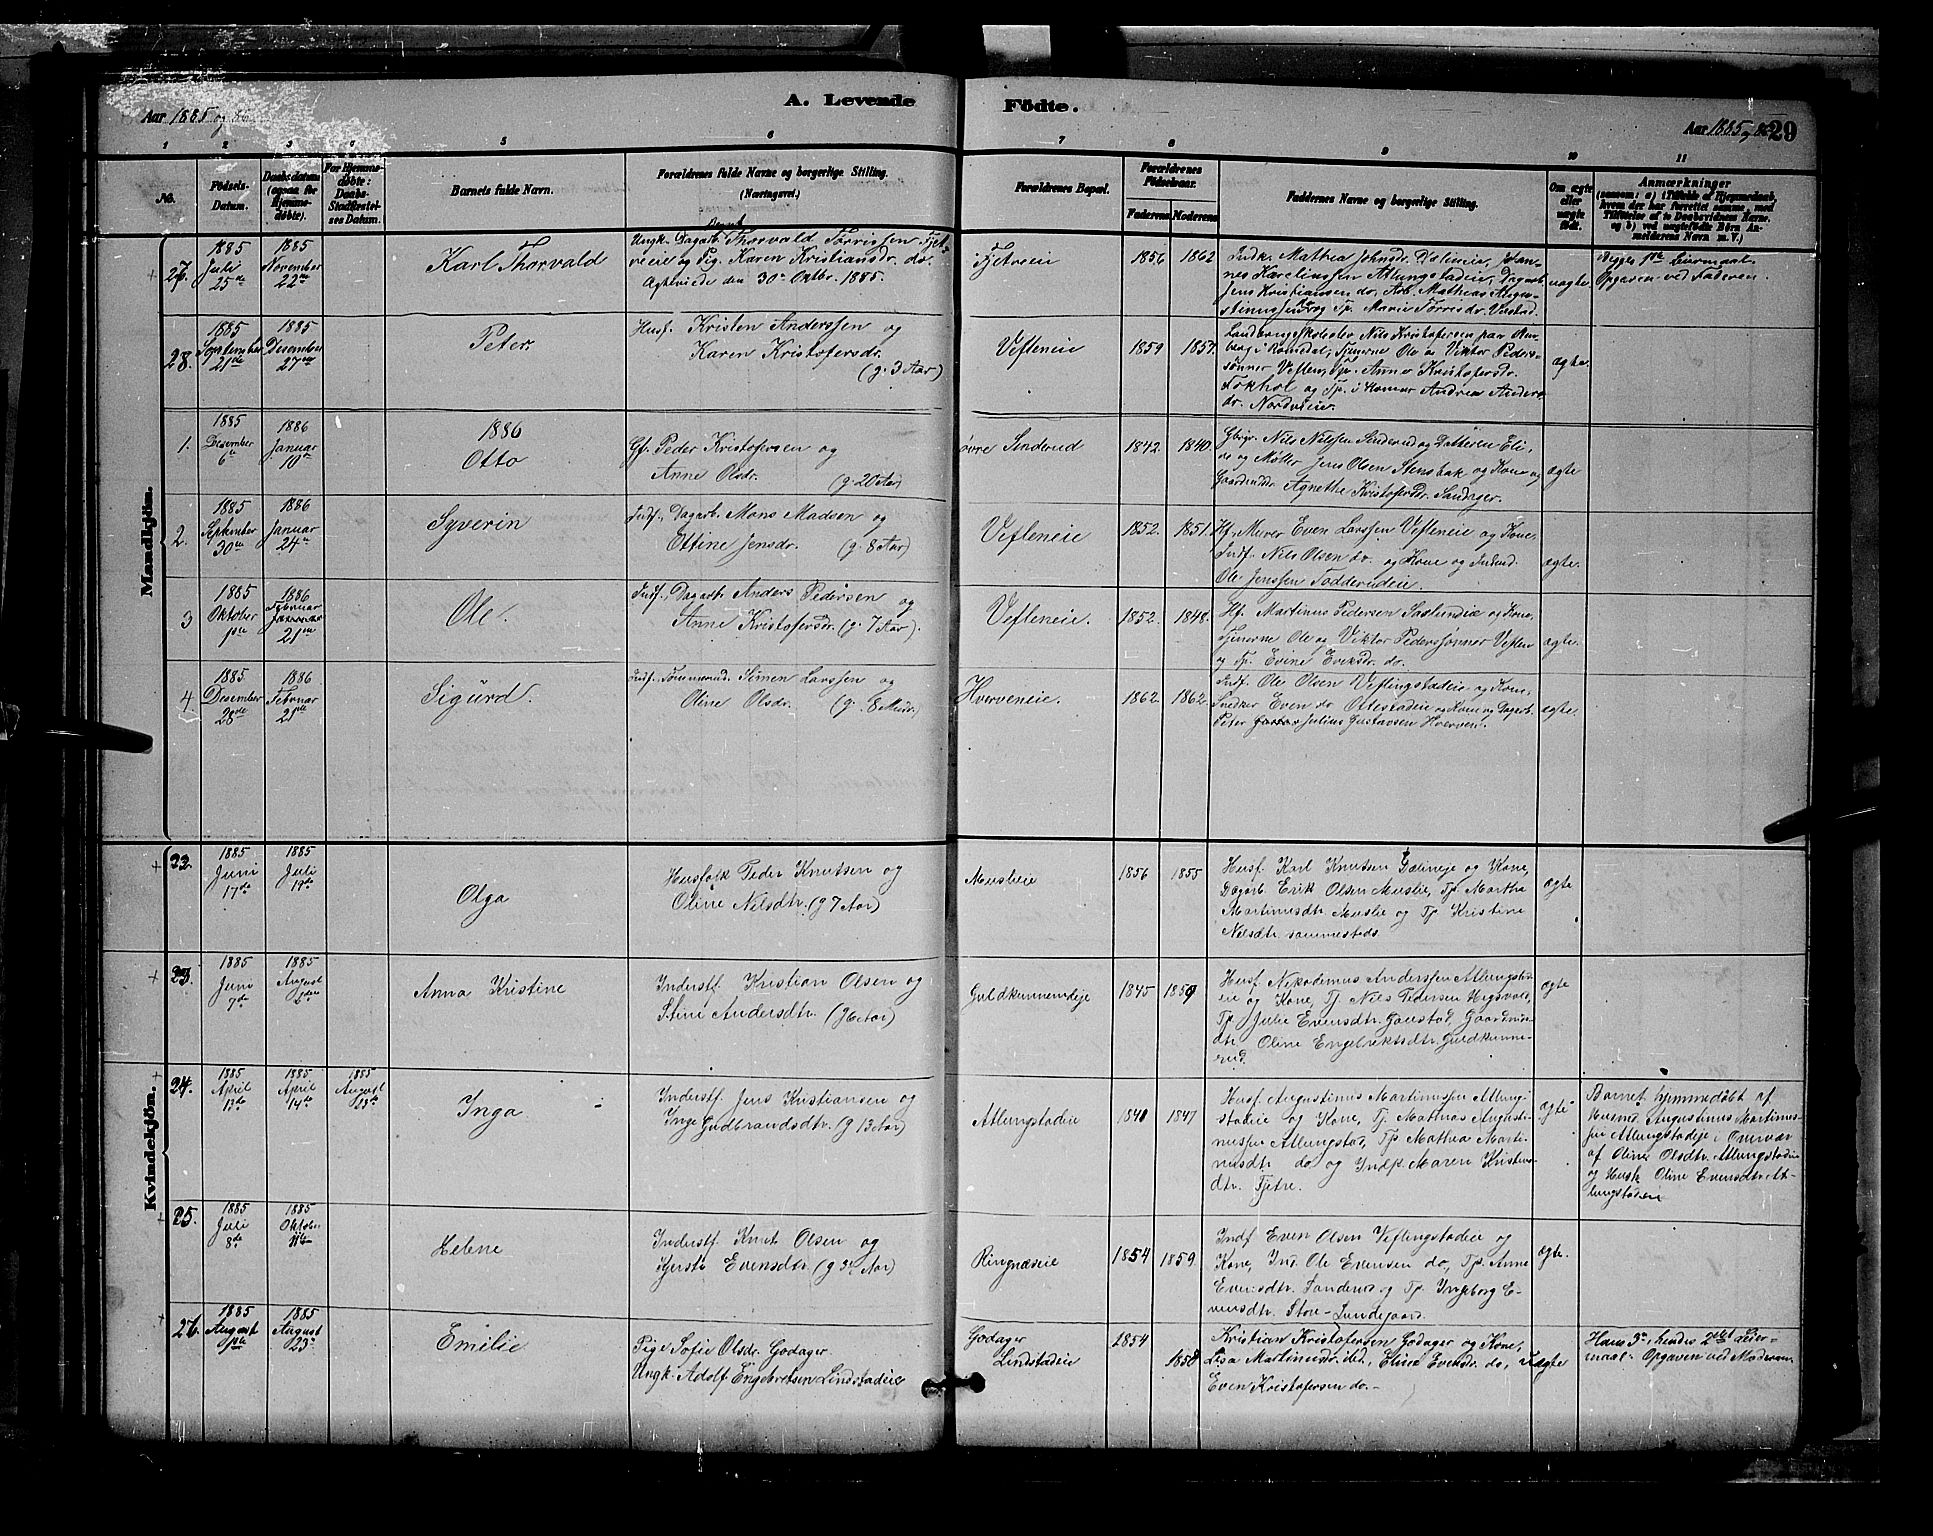 Aar 1885 og 86
A. Levende Födte.
Aar 1885 og 86 29
1 2 3 4 5 6 7 8 9 10 11
No.
Födsels-Datum.
Daabsdatum (ogsaa for Hjemme-döbte).
For Hjemme-döbte: Daabs-Stadfæstel-ses Datum.
Barnets fulde Navn.
Forældrenes fulde Navne og borgerlige Stilling.
(Næringsvei.)
Forældrenes Bopæl.
Forældrenes Födselsaar.
Faderens Moderens
Faddernes Navne og borgerlige Stilling.
Om ægte eller uægte födt.
Anmærkninger
Mandkjön.
27.
1885 Juli 25de
1885 November 22de
Karl Thorvald
Ungk. Dagarb. Thorvald Torrissen Fjet-
reeie og Pig. Karen Kristiansdr. do.
Agteviede den 30te Oktbr. 1885.
Fjetreeie
1856 1862
Indk. Mathea Johnsdr. Dalineie, Johan-
nes Karelinssen Atlungstadeie, Dagarb.
Jens Kristiansen do, Arb. Mathias Augu-
stinussen do og Tp. Marie Torrisdr.
uægte
Begges 1ste Leiermaal.
Opgaven ved Faderen.
28.
1885 September 21de
1885 Desember 27de
Peter.
Husf. Kristen Anderssen og
Karen Kristofersdr.
(g. 3 Aar)
Vefleneie
1859 1857.
Landbrugsskoleelev Nils Kristofersen paa
i Romedal, Tjenerne Ole og Viktor Peders-
sønner Veflen, Tp. Anne Kristofersdr.
Fokhol og Tp. i Hamar Andrea Anders-
dr. Nordvieie.
ægte.
1886
1.
1885 Desember 6te
1886 Januar 10de
Otto
Gf. Peder Kristofersen og
Anne Olsdr. (g. 20 Aar)
øvre Sinderud
1842. 1840.
Gbrgr. Nils Nilssen Sinderud og Datteren Eli-
se og Møller Jens Olsen Stensbak og Kone og
Gaardmddr. Agnethe Kristofersdr. Sandager.
ægte
2.
1885 September 30te
1886 Januar 24de
Syverin
Indf. Dagarb. Mons Madsen og
Ottine Jensdr. (g. 8 Aar)
Vefleneie
1852. 1851.
Hf. Murer Even Larssen Vefleneie og Kone,
Indf. Nils Olsen do og Kone og Indmd.
Ole Jenssen Fodderudeie.
ægte.
3
1885 Oktober 1ste
1886 Februar 21de
Ole.
Indf. Dagarb. Anders Pedersen og
Anne Kristofersdr. (g. 7 Aar).
Vefleneie.
1852. 1848.
Hf. Martinus Pedersen Saxlundeie og Kone,
Tjenerne Ole og Viktor Pederssønner Veflen
og Tp. Evine Evensdr. do.
ægte.
4
1885 Desember 28de
1886 Februar 21de
Sigurd.
Indf. Tømmermd. Simen Larssen og
Oline Olsdr. (g. 8 Mdr.)
Hverveneie.
1862. 1862.
Indf. Ole Olsen Veflingstadeie og Kone,
Snedker Even do Ottestadeie og Kone og Dagarb.
Peter Julius Gustavsen Hverven.
ægte.
Kvindekjön.
22.
1885 Juni 17de
1885 Juli 19de
Olga
Husfolk Peder Knutsen og
Oline Nilsdtr. (g 7 Aar)
Muslieie
1856 1855
Husf. Karl Knutsen Dælineie og Kone,
Dagarb. Erik Olsen Muslie, Tp. Martha
Martinusdtr. Muslie og Tp. Kristine
Nilsdtr sammesteds
ægte
23.
1885 Juni 7de
1885 August
Anna Kristine
Inderstf. Kristian Olsen og
Stine Andersdtr.
Guldkunnerudeie
1845 1859
Husf. Nikodemus Anderssen Atlungstad-
eie og Kone, Tj. Nils Pedersen
Tp. Julie Evensdtr. Gaustad, Gaardmds-
dtr. Oline Engebrektsdtr. Guldkunne-
rud.
ægte
24.
1885 April 13de
1885 April 14de
1885 August
Inga
Inderstf. Jens Kristiansen og
Inge Gudbrandsdtr. (g 13 Aar)
Atlungstadeie
1840 1847
Husf. Augustinus Martinussen Atlung-
stadeie og Kone, Tj. Mathias Augusti-
nussen Atlungstad, Tp. Mathea Marti-
nusdtr do og Indp. Maren Kristians-
dtr. Fjetre.
ægte
Barnet hjemmedøbt af
Husmd. Augustinus Martinus-
sen Atlungstadeie i Overvær
af Oline Olsdtr. Atlungstadeie
og Husk. Oline Evensdtr. At-
lungstadeie
25.
1885 Juli 8de
1885 Oktober 11te
Helene
Inderstf. Knut Olsen og
Kjersti Evensdtr. (g 3½ Aar)
Ringnæseie
1854 1859
Indf. Even Olsen Veflingstadeie og
Kone, Ind. Ole Evensen do, Tp. Anne
Evensdtr. Sanderud og Tp. Ingeborg E-
vensdtr. Store-Lundgaard.
ægte.
26.
1885 August 1ste
1885 August 23de
Emilie
Pige Sofie Olsdr. Godager
Ungk. Adolf Engebretsen Lindstadeie
Godager
Lindstadeie
1854
1858
Kristian Kristofersen Godager og Kone,
Lisa Martinusdr. ibd., Eline Evensdr. do,
Even Kristofersen do.
Uægte
Hans 3die, hendes 2det Leier-
maal. Opgaven ved Moderen